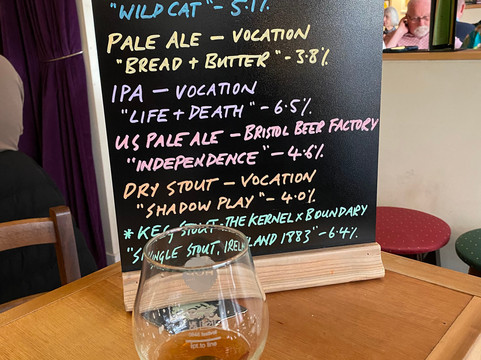 "WILD CAT" - 5.1%
PALE ALE - VOCATION
"BREAD + BUTTER" - 3.8%
IPA - VOCATION
"LIFE + DEATH" - 6.5%
US PALE ALE - BRISTOL BEER FACTORY
"INDEPENDENCE" - 4.6%
DRY STOUT - VOCATION
"SHADOW PLAY" - 4.0%
*KEG STOUT - THE KERNEL x BOUNDARY
"SINGLE STOUT, IRELAND 1883" - 6.4%